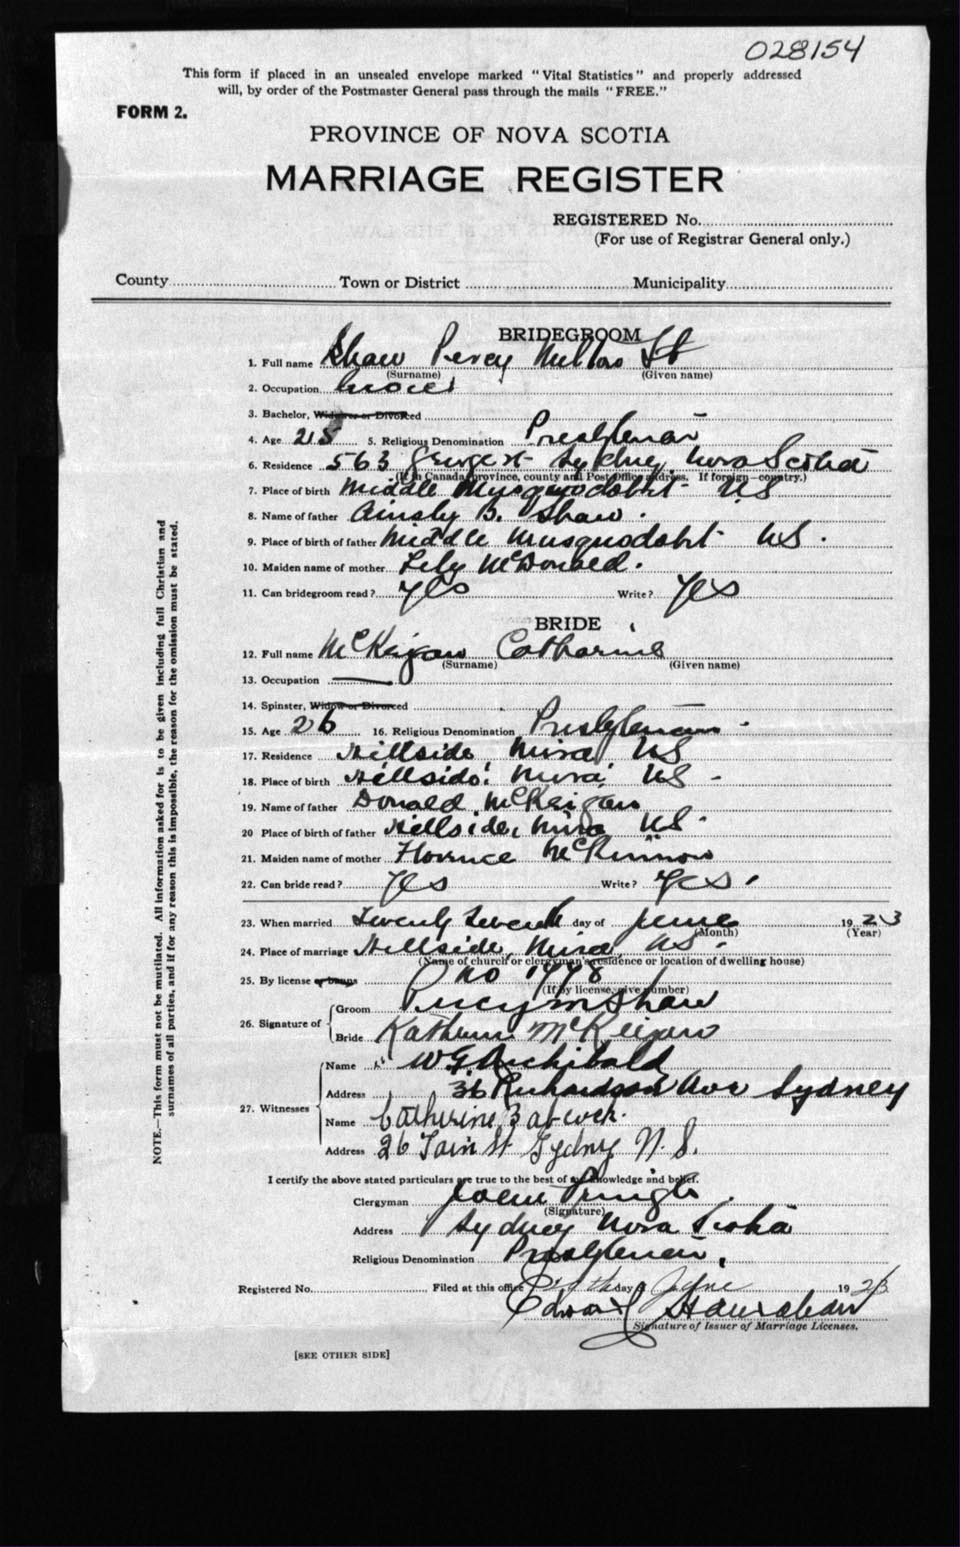 028154
This form if placed in an unsealed envelope marked "Vital Statistics" and properly addressed
will, by order of the Postmaster General pass through the mails "FREE."
FORM 2.
PROVINCE OF NOVA SCOTIA
MARRIAGE REGISTER
REGISTERED No.
(For use of Registrar General only.)
County Town or District Municipality
BRIDEGROOM
1. Full name Shaw Percy
(Surname) (Given name)
2. Occupation
3. Bachelor, Widower or Divorced
4. Age 25 5. Religious Denomination Presbyterian
6. Residence 563 George st Sydney Nova Scotia
(If in Canada province, county and Post Office address. If foreign—country.)
7. Place of birth Middle Musquodobit NS
8. Name of father Ainsly B. Shaw.
9. Place of birth of father Middle Musquodobit NS.
10. Maiden name of mother Lily McDonald.
11. Can bridegroom read? Yes Write? Yes
BRIDE
12. Full name McKeigan Catharine
(Surname) (Given name)
13. Occupation —
14. Spinster, Widow or Divorced
15. Age 26 16. Religious Denomination Presbyterian.
17. Residence Hillside, Mira, NS
18. Place of birth Hillside, Mira, NS -
19. Name of father Donald McKeigan
20 Place of birth of father Hillside, Mira NS.
21. Maiden name of mother Florence McKinnon
22. Can bride read? Yes Write? Yes.
23. When married Twenty Seventh day of June 1923
(Month) (Year)
24. Place of marriage Hillside, Mira, NS.
(Name of church or clergyman's residence or location of dwelling house)
25. By license or banns no 1998
(If by license, give number)
26. Signature of Groom Percy M Shaw
Bride McKeigan
27. Witnesses Name W.G. Archibald
Address 36 Richardson Ave Sydney
Name Catherine
Address 26 St Sydney N.S.
I certify the above stated particulars are true to the best of my knowledge and belief.
Clergyman Pringle.
(Signature)
Address Sydney Nova Scotia
Religious Denomination Presbyterian.
Registered No. Filed at this office day of June 1923
Edward
Signature of Issuer of Marriage Licenses.
[SEE OTHER SIDE]
NOTE.—This form must not be mutilated. All information asked for is to be given including full Christian and
surnames of all parties, and if for any reason this is impossible, the reason for the omission must be stated.